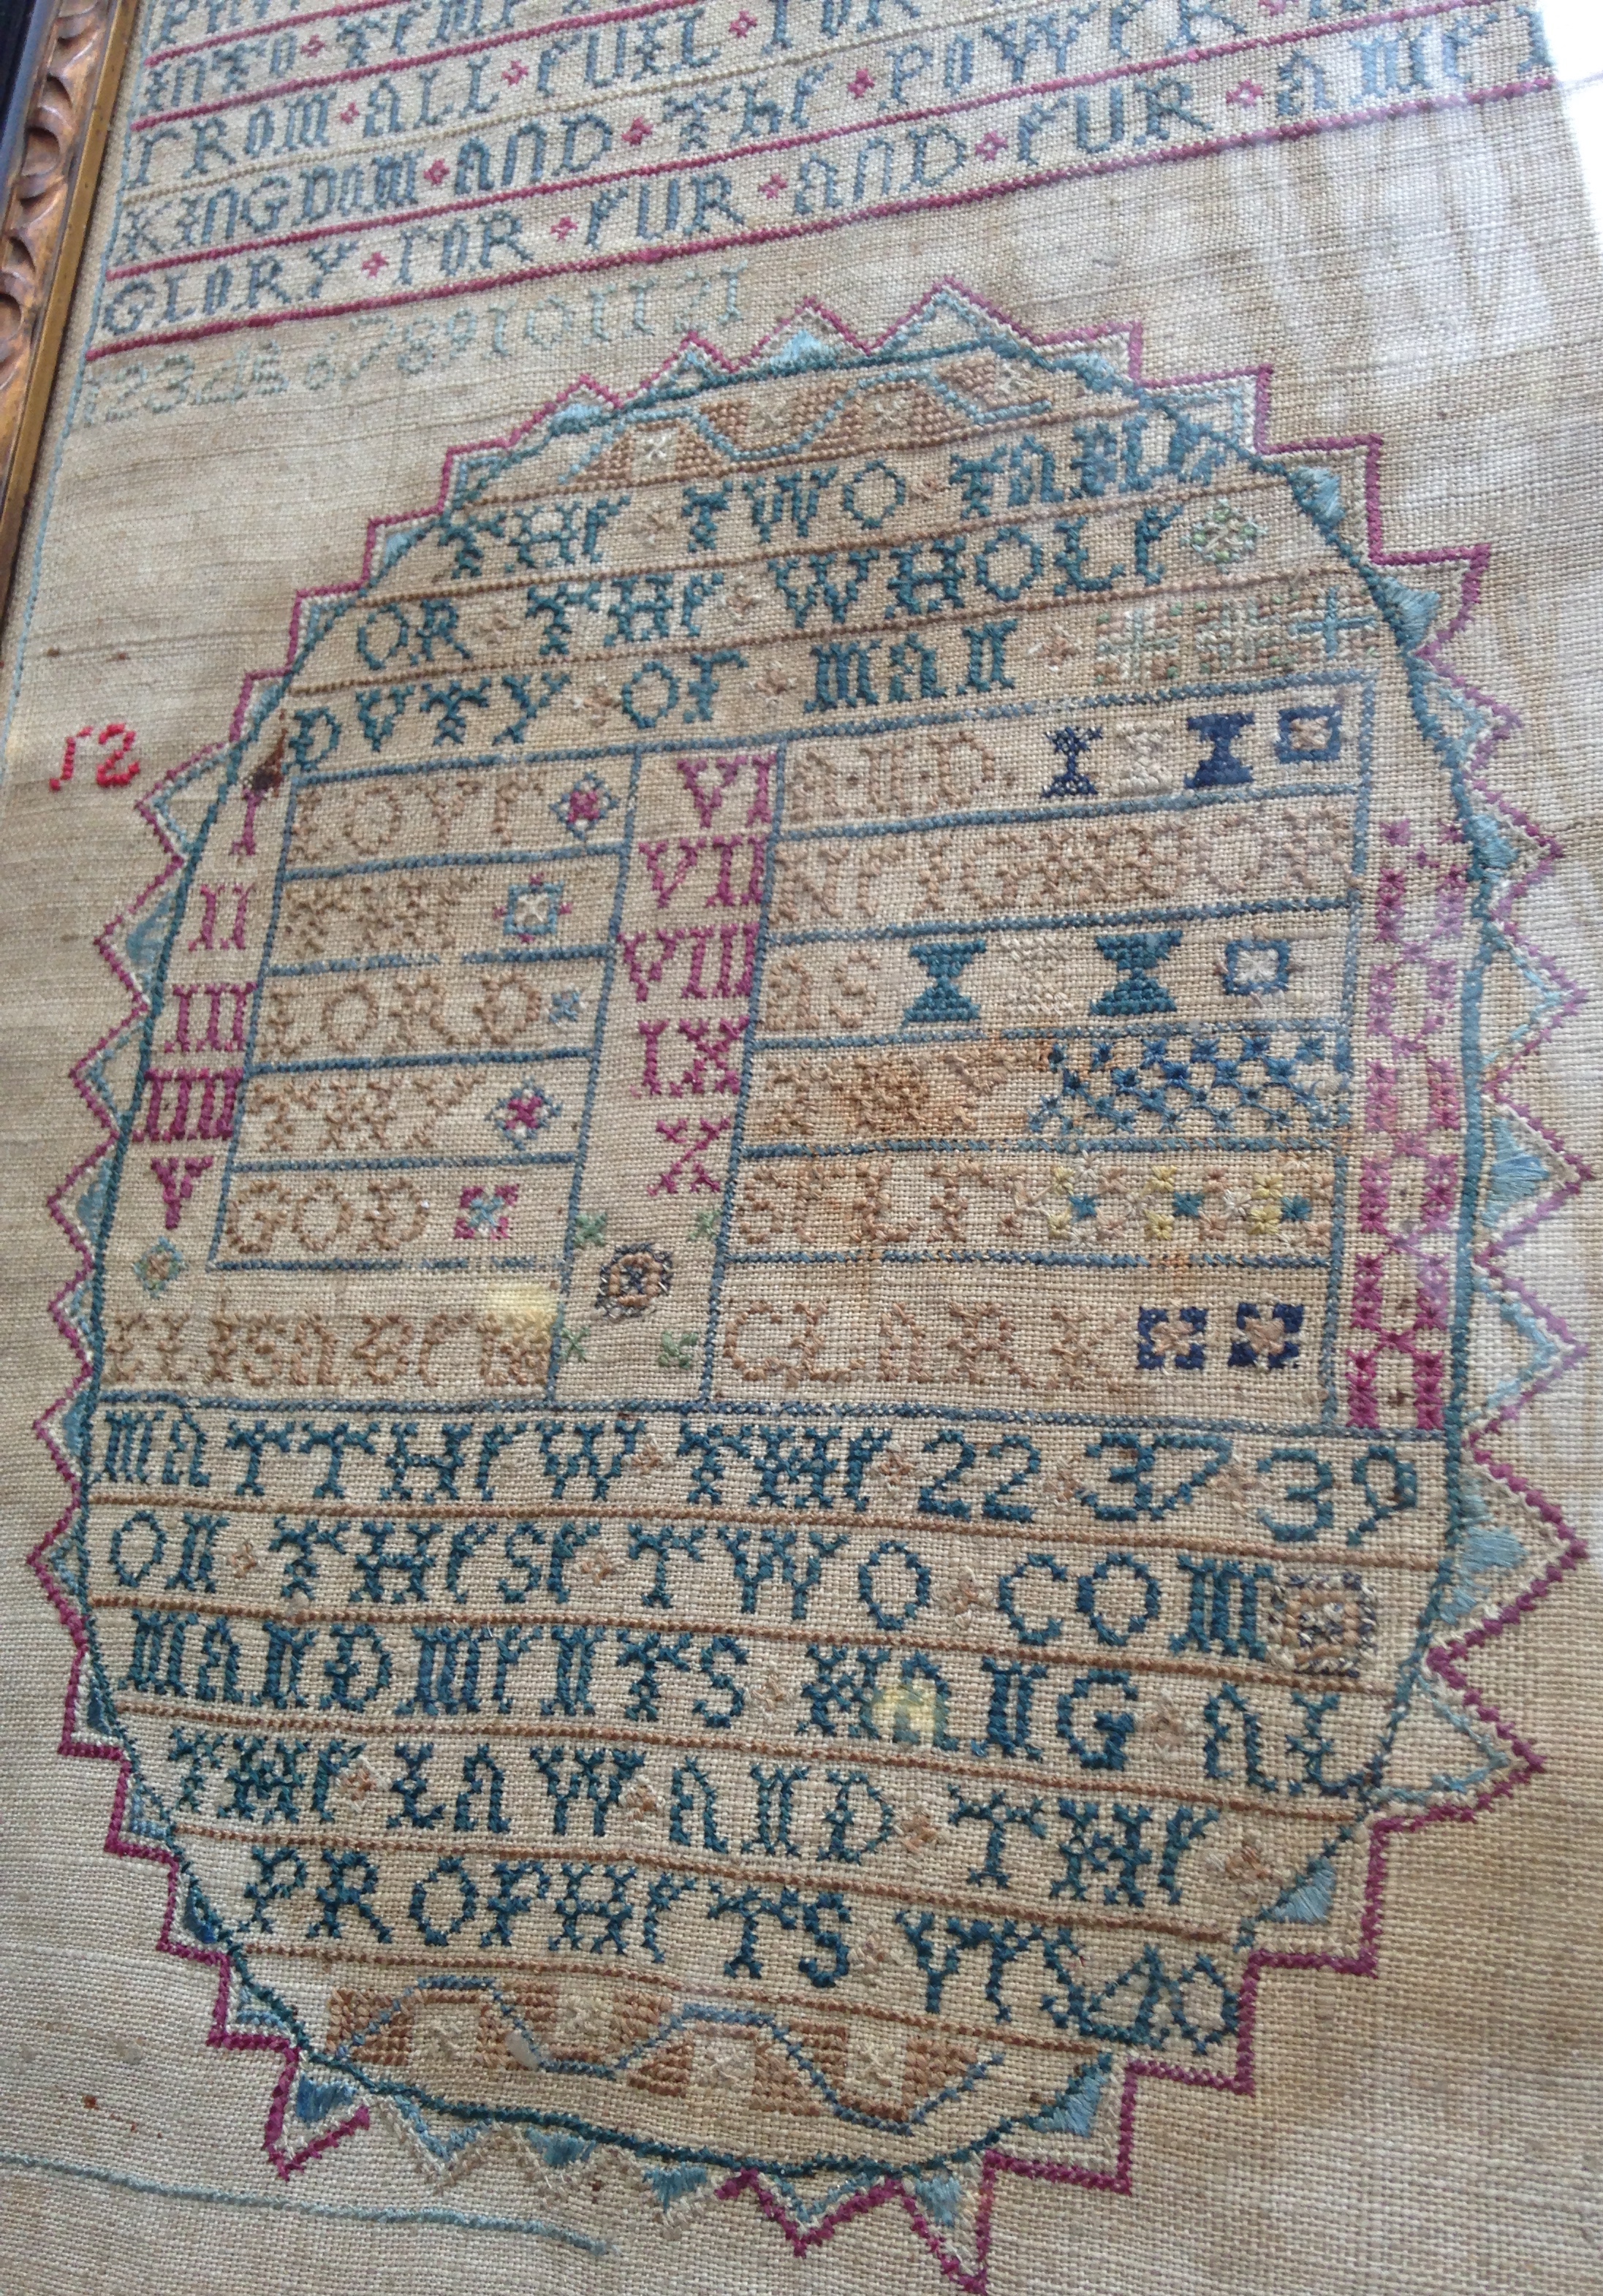 INTO TEMP
FROM ALL EUIL FOR
KINGDOM AND THE POWER
GLORY FOR EUR AND EUR AME
1 2 3 4 5 6 7 8 9 10 11 12 1
12
THE TWO TABLE
OR THE WHOLE
DVTY OF MAN
I LOVE VI AND
II THE VII NEIGHBOR
III LORD VIII AS
IIII THY IX THY
V GOD X SELF
ELISABETH CLARK
MATTHEW THE 22 37 39
ON THESE TWO COM
MANDMENTS HANG AL
THE LAW AND THE
PROFHETS VES 40